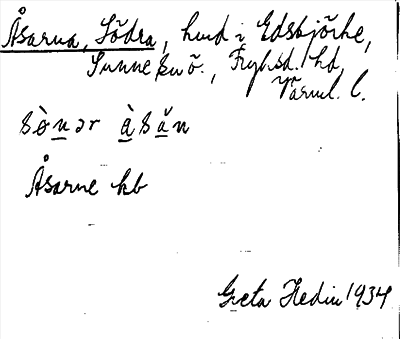 Åsarna, Södra, hmd i Edsbjörke,
Sunne sn ö., Fryksd. hd,
Värml. l.
sònər àsăn
Åsarne kb
Greta Hedin 1934